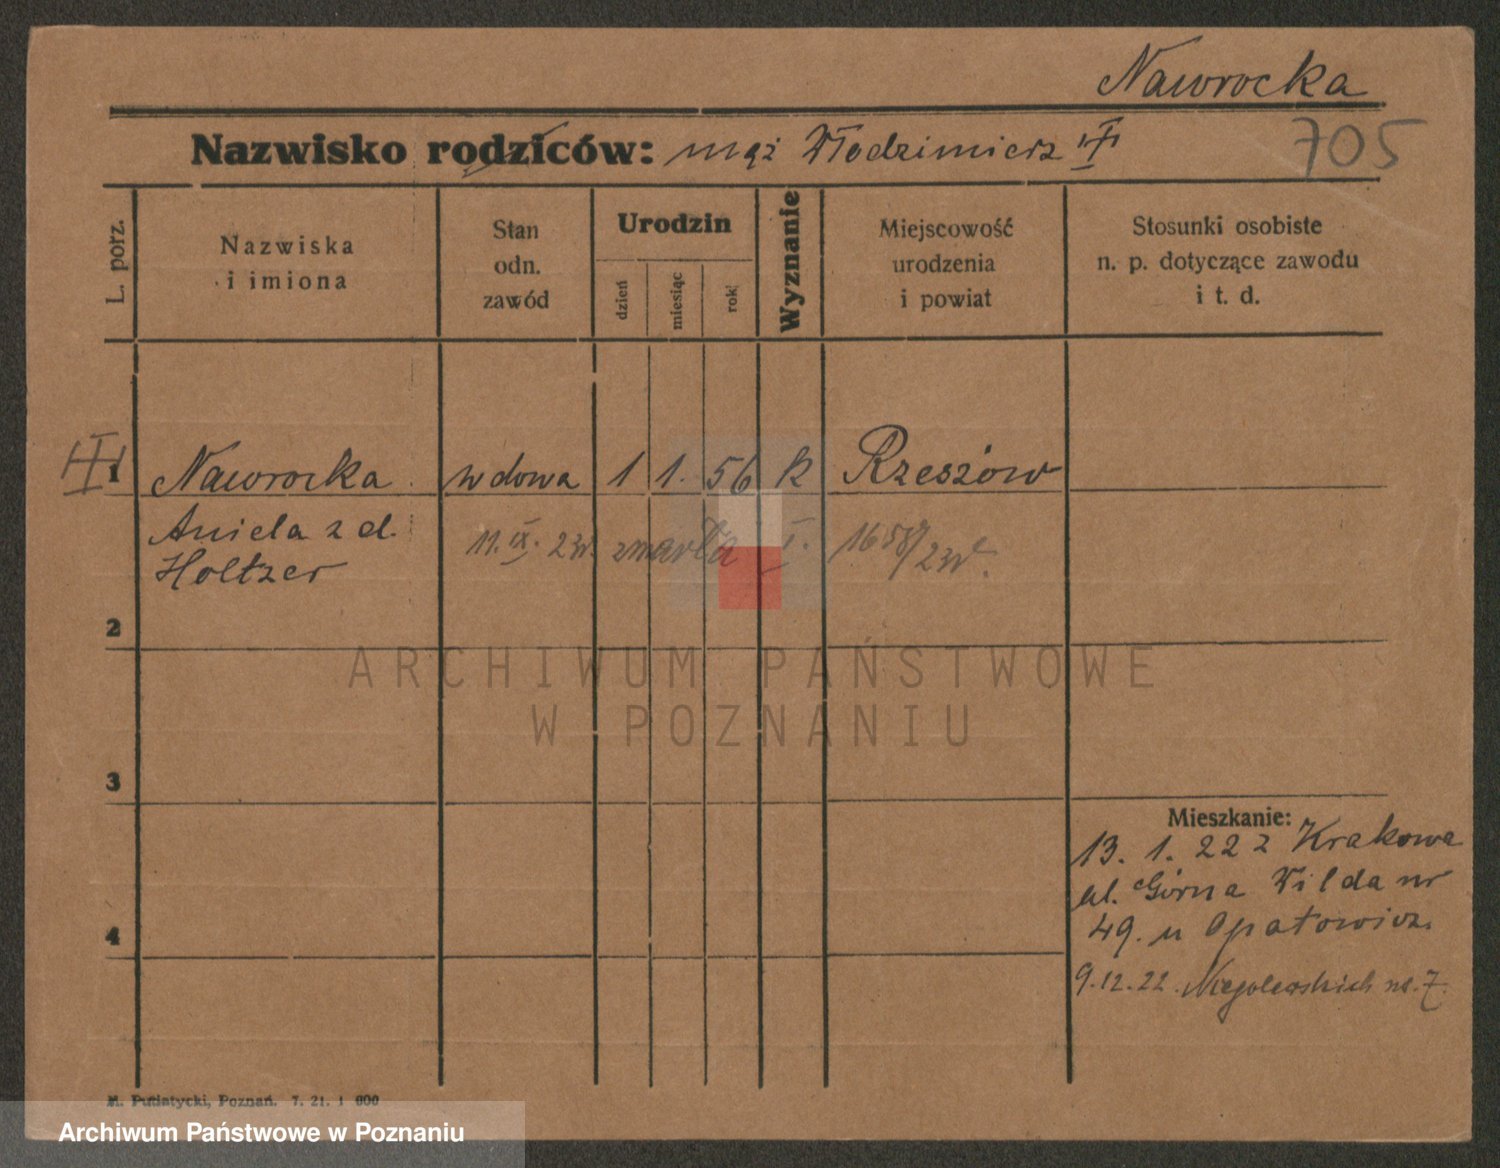 Nawrocka
Nazwisko rodziców: mąż Włodzimierz
705
L. porz.
Nazwiska
i imiona
Stan
odn.
zawód
Urodzin
dzień
miesiąc
rok
Wyznanie
Miejscowość
urodzenia
i powiat
Stosunki osobiste
n. p. dotyczące zawodu
i t. d.
1 Nawrocka wdowa 1 1. 56 k Rzeszów
Aniela z d.
Holtzer
11. IX. 23r. zmarła I. 1658/23r.
2
3
4
Mieszkanie:
13. 1. 22 z Krakowa
ul. Górna Wilda nr
49. u Opatowicz.
9.12.22. Niegolewskich nr. 7.
M. Putiatycki, Poznań. 7. 21. 1 000
ARCHIWUM PAŃSTWOWE
W POZNANIU
Archiwum Państwowe w Poznaniu